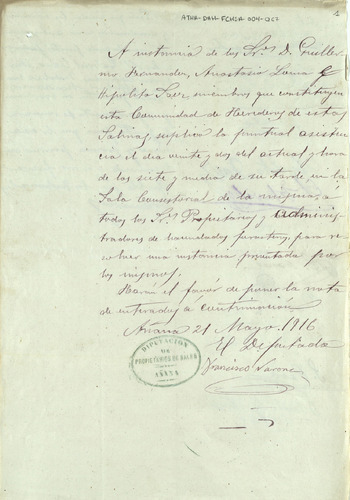 ATHA-DAH-FCMSA-004-1207
1
A instancia de los Srs. D. Guiller
mo Fernandez, Anastasio Luna y
Hipolito Saez, miembros que constituyen
esta Comunidad de Herederos de estas
Salinas, suplica la puntual asisten
cia el dia veinte y dos del actual y hora
de las siete y media de su tarde en la
Sala Consistorial de la misma, á
todos los Srs. Propietarios y adminis
tradores de heredades foraste, para re
solver una instancia presentada por
los mismos.
Harán el favor de poner la nota
de enterados á continuación
Añana 21 Mayo 1916
El Diputado
Francisco
DIPUTACION
DE
PROPIETARIOS DE SALES
AÑANA